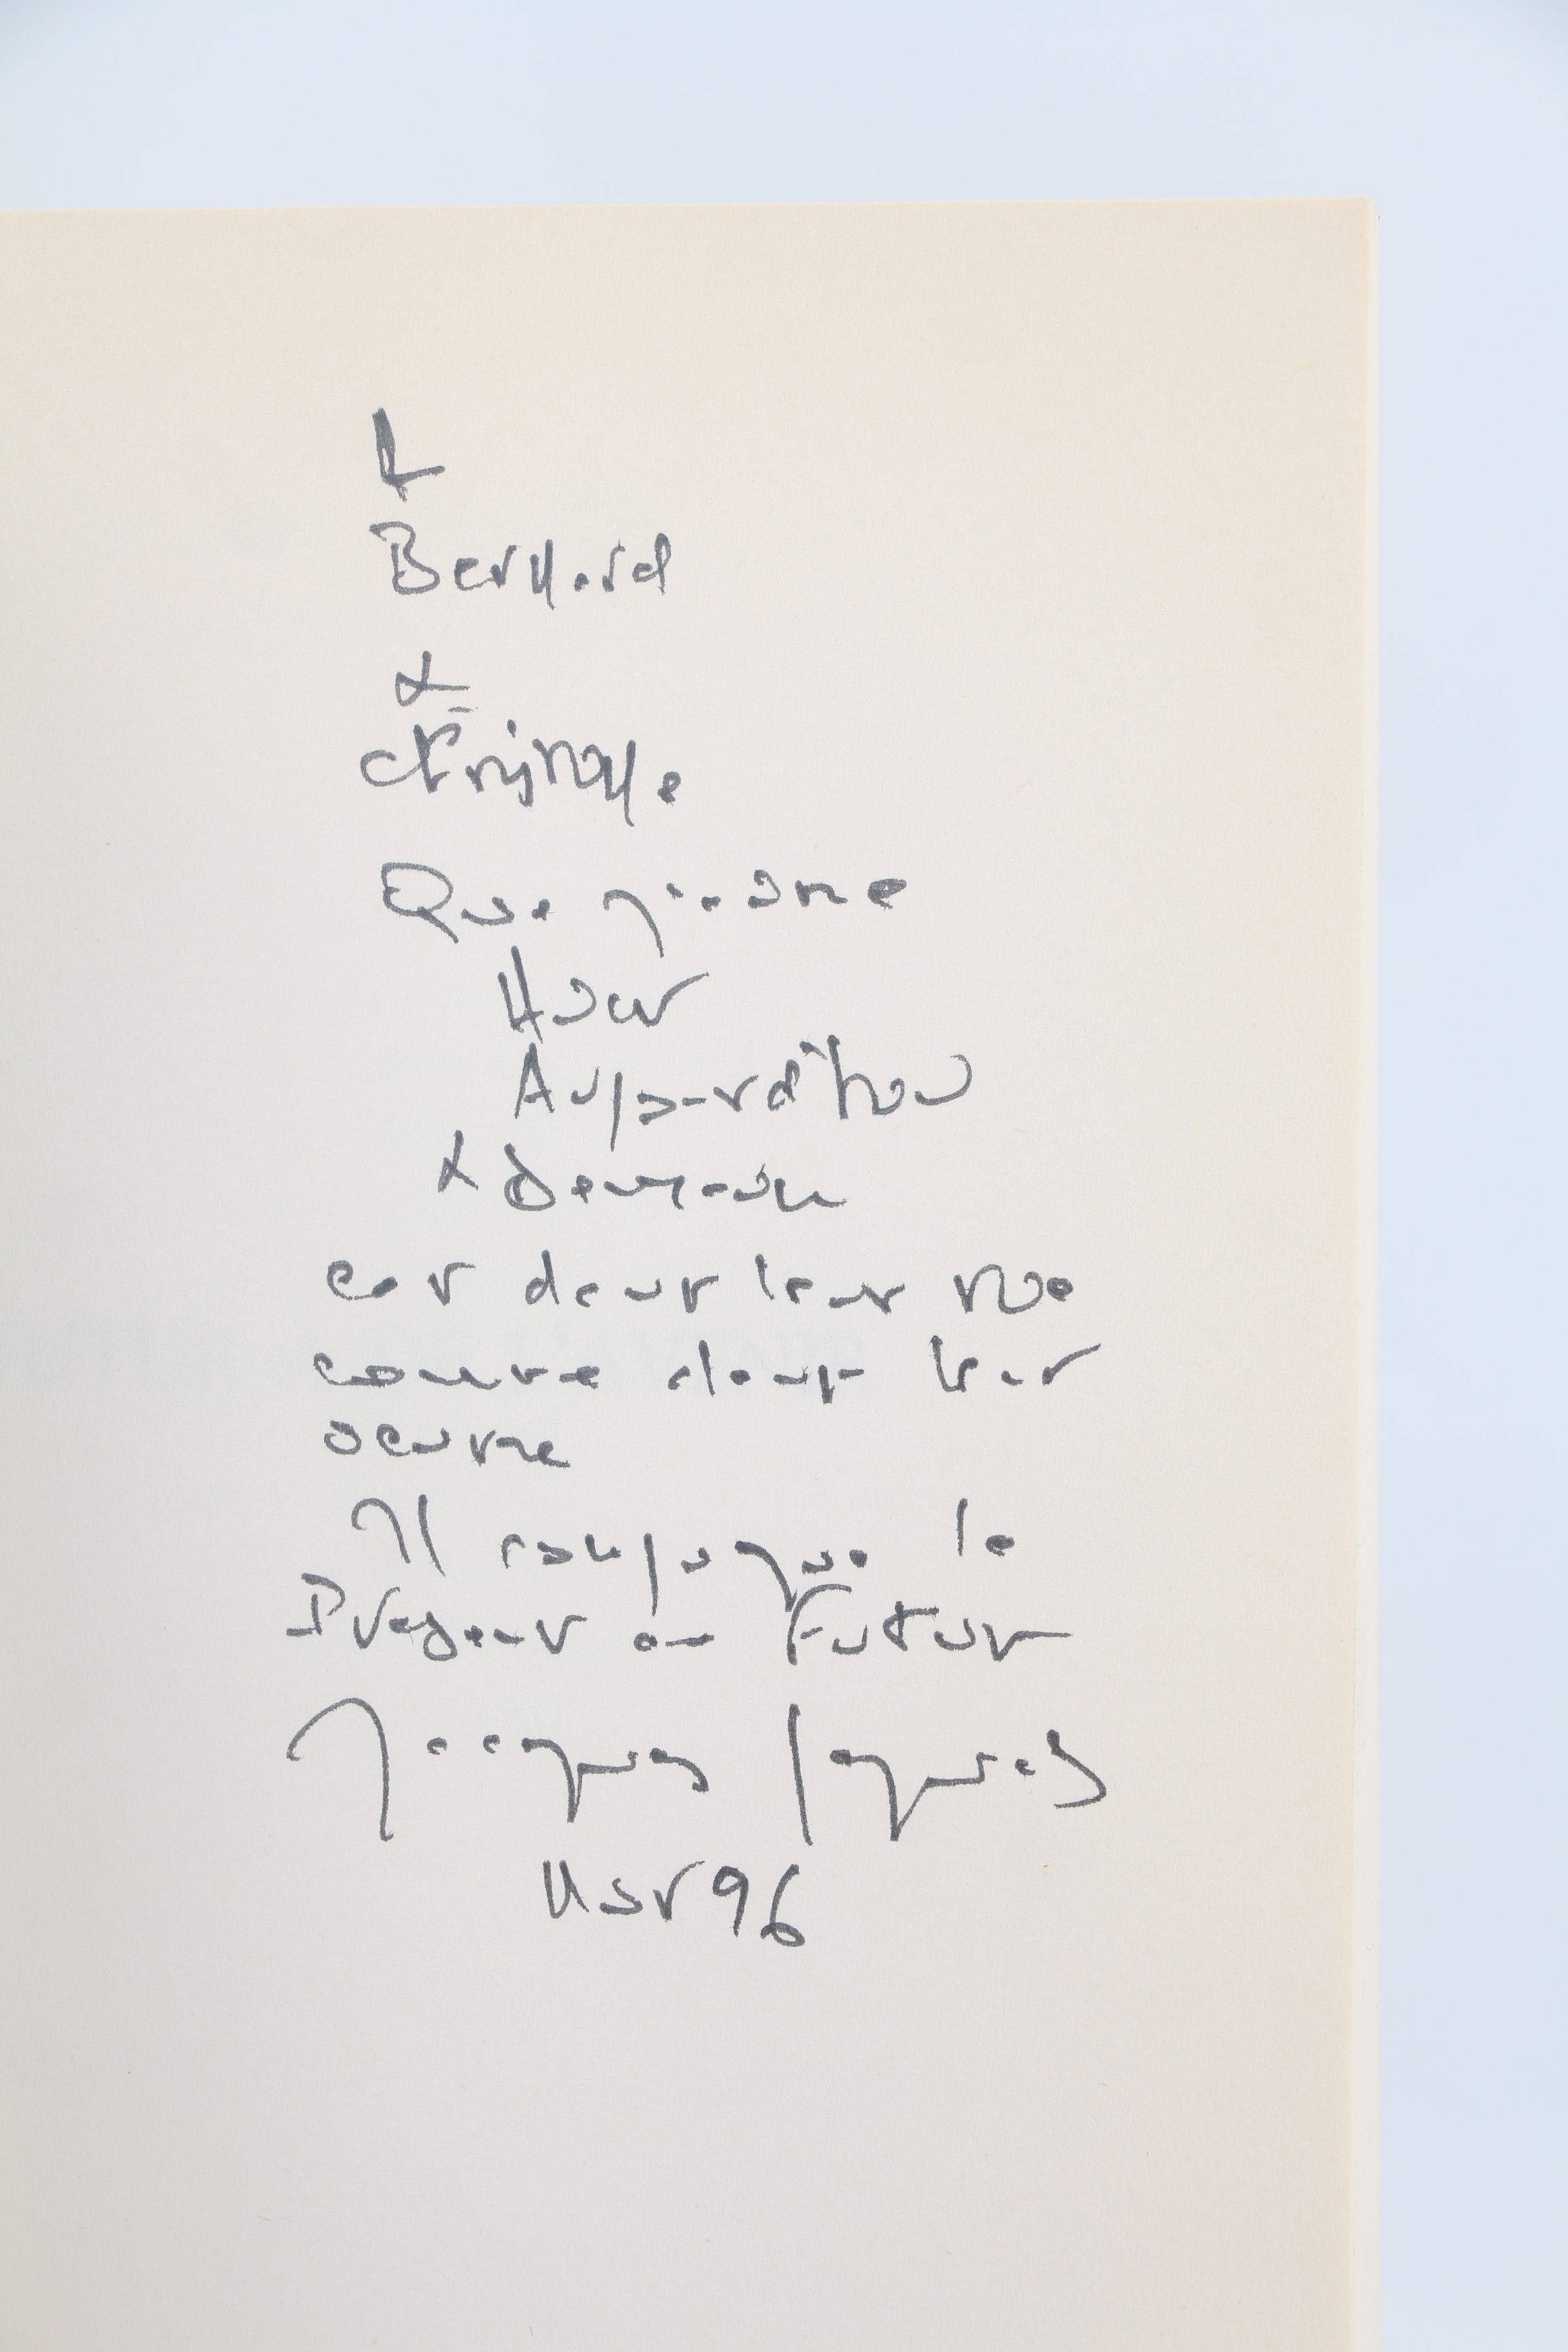 A
Bernard
&
Christophe
Que j'aime
Hier
Aujourd'hui
& Demain
car dans leur vie
comme dans leur
oeuvre
Il conjugue le
Present au Futur
Jacques
Mar 96